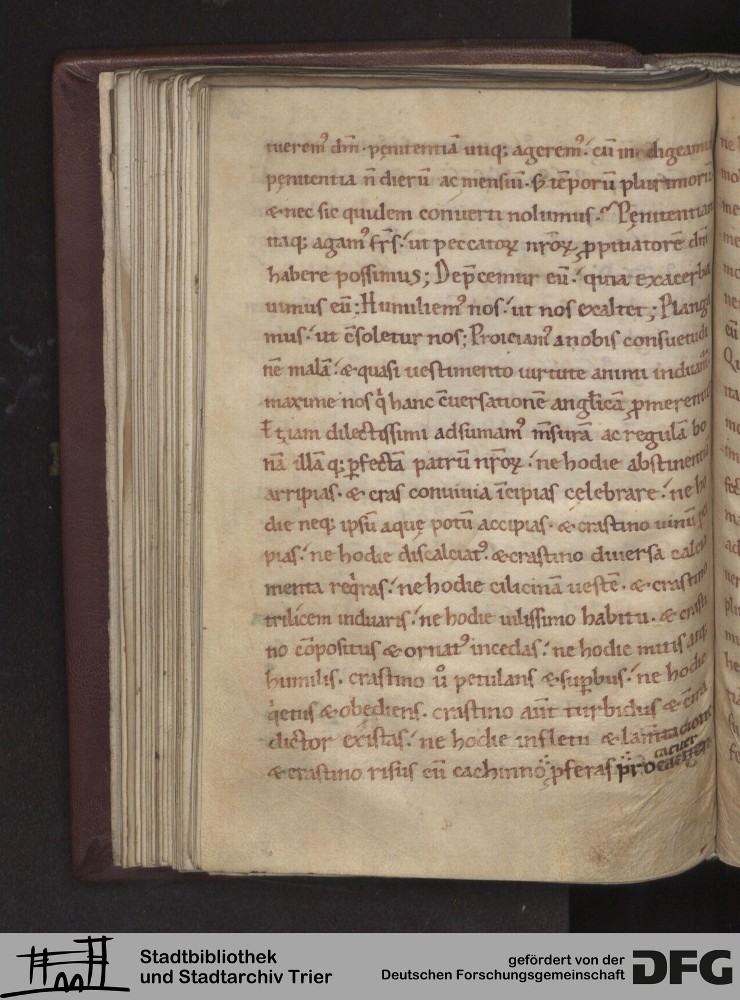 tuerem᾽ dm̄ · pęnitentiā utiq; agerem᾽ : cū in digeamus
pęnitentia n̄ dierū ac mensiū · s; tēporū plurimorū
& nec sic quidem conuerti nolumus · Pęnitentiam
itaq; agam᾽ frs̄ : ut peccatoꝝ nr̄oꝝ ꝓpitiatorē dm̄
habere possimus ; Dep̄cemur eū : quia exacerba
uimus eū ; Humiliem᾽ nos : ut nos exaltet ; Planga
mus : ut c̄soletur nos ; Proiciam᾽ a nobis consuetudi
nē malā : & quasi uestimento uirtute animi induam᾽
maxime nos qͥ hanc c̄uersationē anglicā ꝓmeremur
dilectissimi adsumam᾽ m̄surā ac regulā bo
nā illā q; ꝑfectā patrū nr̄oꝝ : ne hodie abstinentiā
arripias · & cras conuiuia īcipias celebrare : ne ho
die neq; ipsū aquę potū accipias · & crastino uinū
pias : ne hodie discalciat᾽ · & crastino diuersa calcia
menta reqͥras : ne hodie cilicinā uestē · & crastino
trilicem induaris : ne hodie uilissimo habitu · & crasti
no cōpositus & ornat᾽ incedas : ne hodie mitis atq;
humilis · crastino u̾ petulans & suꝑbus : ne hodie
qͥetus & obediens · crastino aūt turbidus & c̄tra
dictor existas : ne hodie in fletu & lamtatione
& crastino risus cū cachinno ꝓferas
Stadtbibliothek
und Stadtarchiv Trier
gefördert von der
Deutschen Forschungsgemeinschaft
DFG